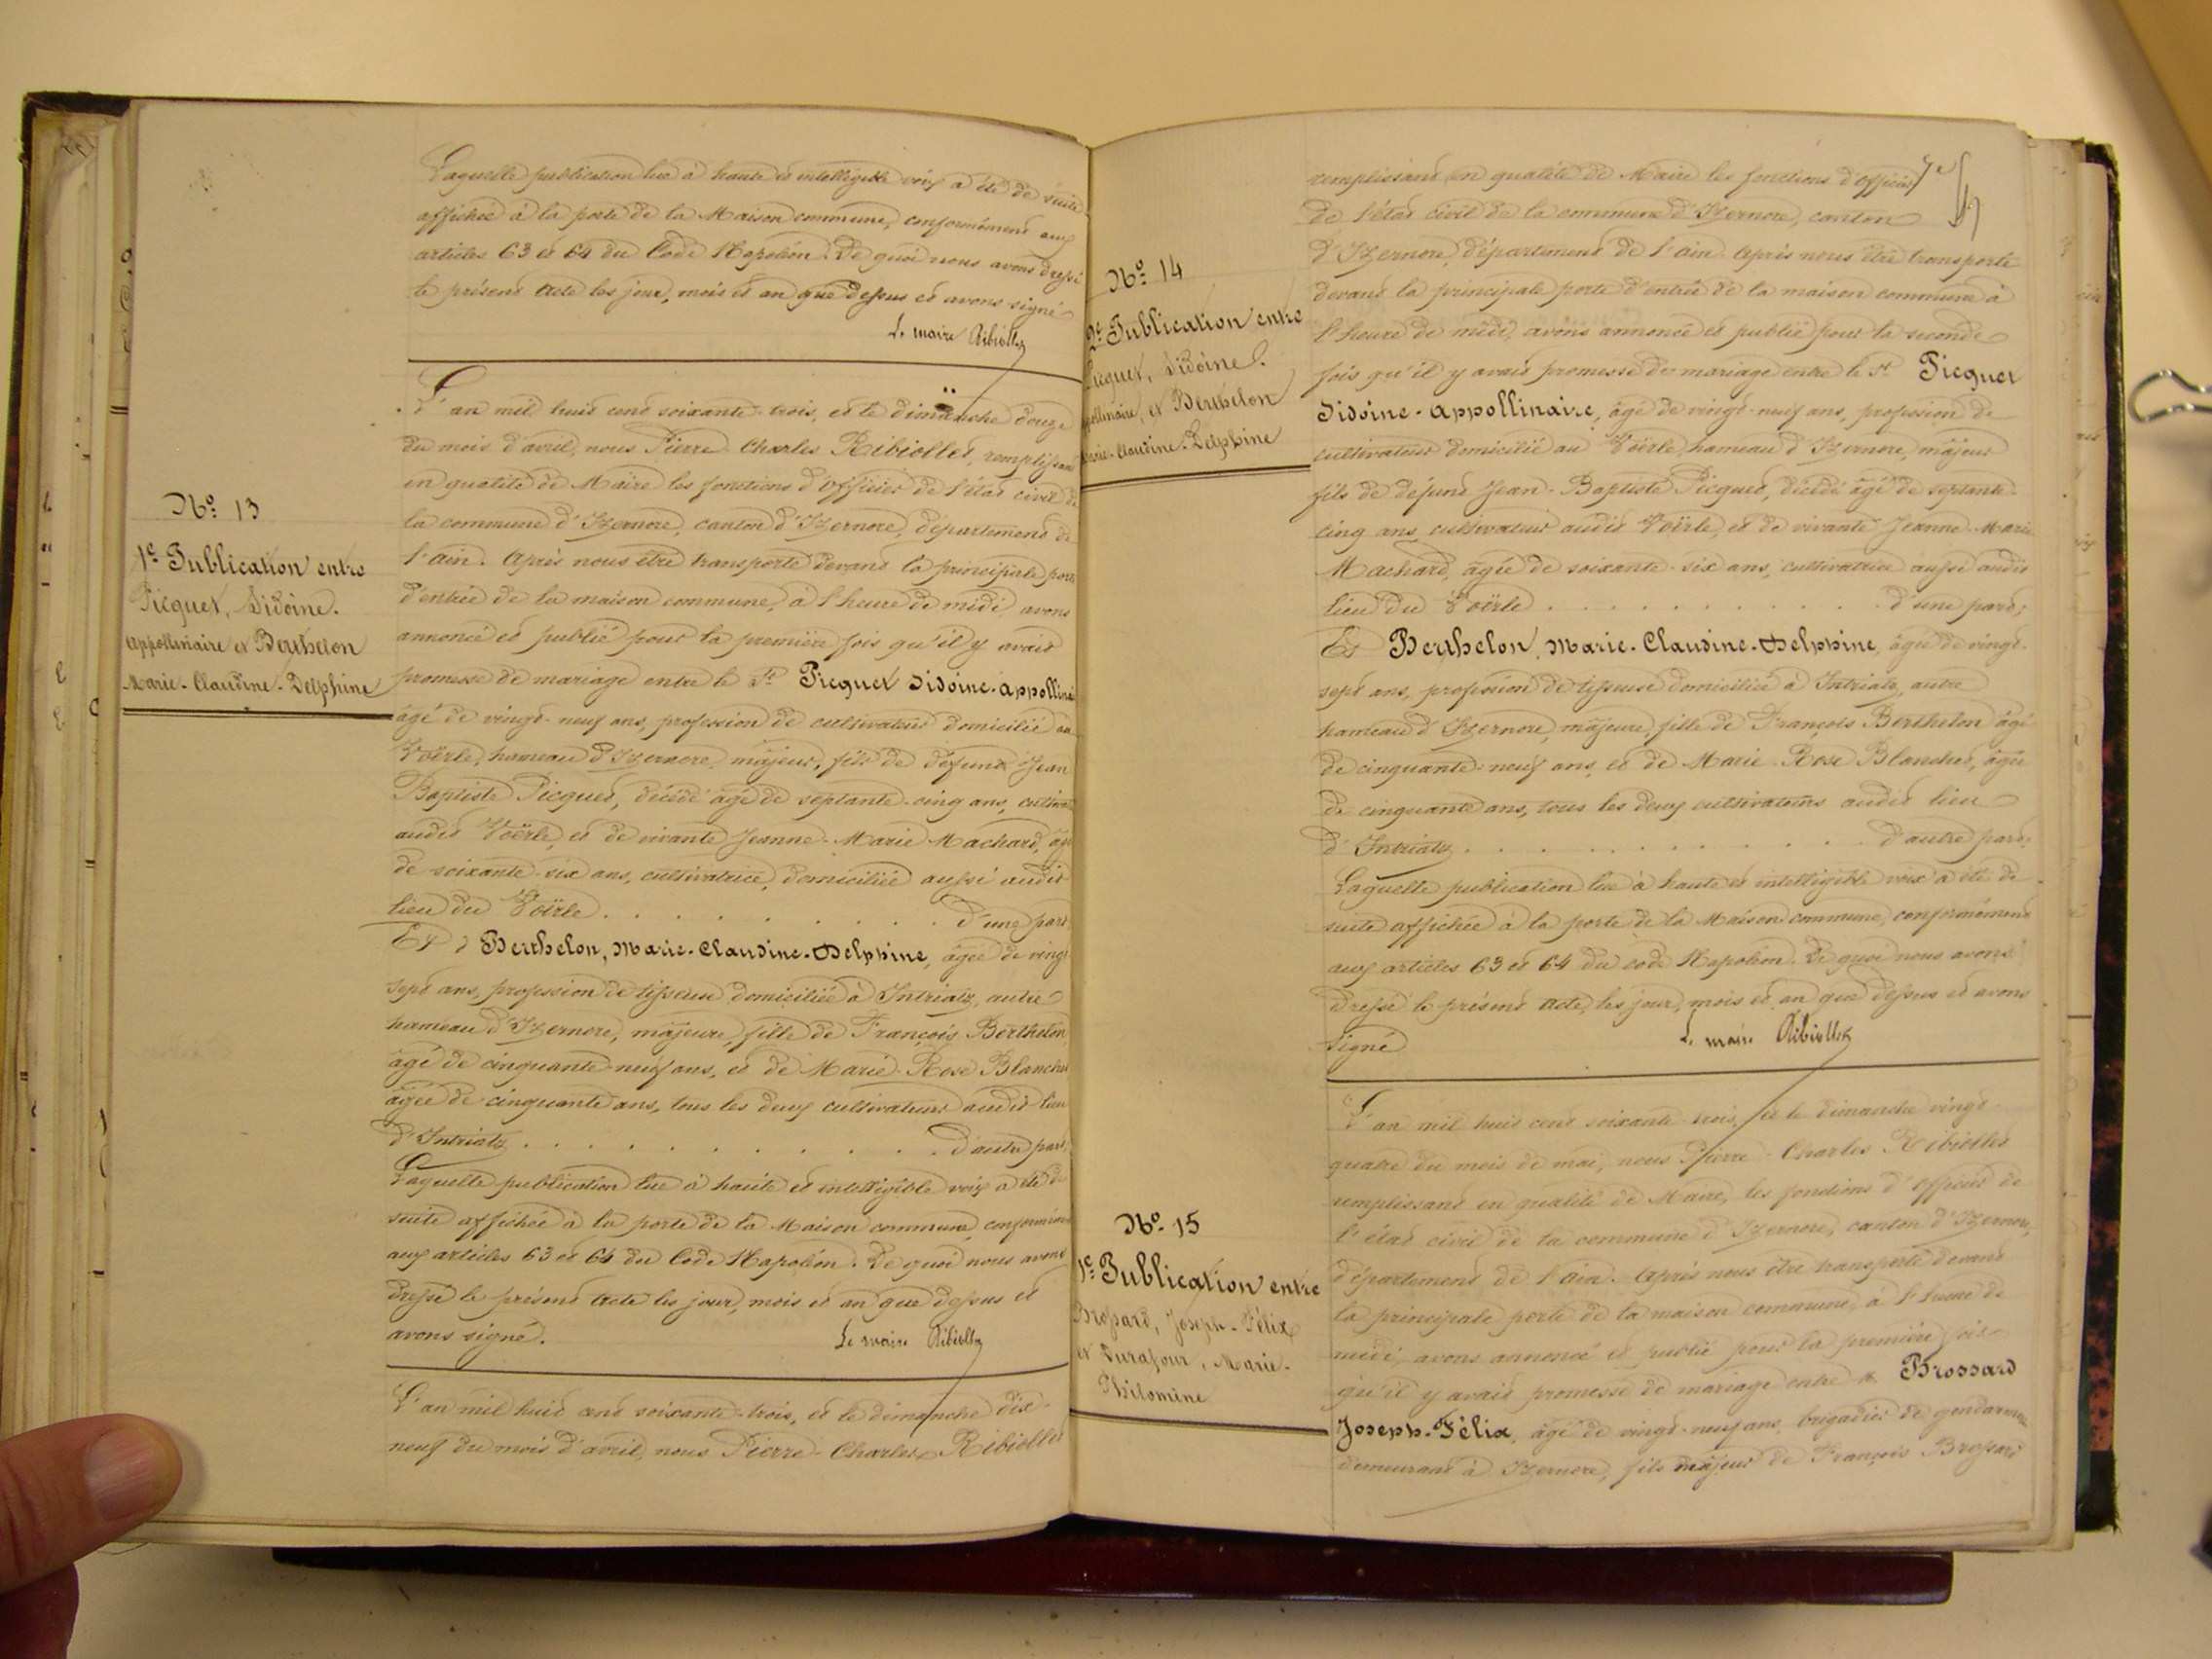 Laquelle publication lue à haute et intelligible voix a été de suite
affichée à la porte de la Maison commune, conformément aux
articles 63 et 64 du Code Napoléon. De quoi nous avons dressé
le présent acte les jour, mois et an que dessus et avons signé
Le maire Ribiollet
N.° 13
1.e Publication entre
Picquet, Sidoine.
Appollinaire et Berthelon
Marie-Claudine-Delphine
L'an mil huit cent soixante-trois, et le dimanche douze
du mois d'avril, nous Pierre Charles Ribiollet, remplissant
en qualité de Maire les fonctions d'officier de l'état civil de
la commune d'Izernore, canton d'Izernore, département de
l'ain. Après nous être transporté devant la principale porte
d'entrée de la maison commune, à l'heure de midi, avons
annoncé et publié pour la première fois qu'il y avait
promesse de mariage entre le Sr Picquet Sidoine-Appollinai
âgé de vingt-neuf ans, profession de cultivateur domicilié au
Voërle, hameau d'Izernore, majeur, fils de défunt Jean
Baptiste Picquet, décédé âgé de septante-cinq ans, cultiva
audit Voërle, et de vivante Jeanne-Marie Machard, âgée
de soixante-six ans, cultivatrice, domiciliée aussi audit
lieu du Voërle . . . . . . . . . . d'une part
Et Berthelon, Marie-Claudine-Delphine, âgée de vingt
sept ans, profession de tisseuse domiciliée à Intriatz, autre
hameau d'Izernore, majeure, fille de François Berthelon
âgé de cinquante-neuf ans, et de Marie-Rose Blanchet
âgée de cinquante ans, tous les deux cultivateurs audit lieu
d'Intriatz . . . . . . . . . . . d'autre part,
Laquelle publication lue à haute et intelligible voix a été de
suite affichée à la porte de la Maison commune, conformément
aux articles 63 et 64 du Code Napoléon. De quoi nous avons
dressé le présent acte les jour, mois et an que dessus et
avons signé.
Le maire Ribiollet
L'an mil huit cent soixante-trois, et le dimanche dix-
neuf du mois d'avril, nous Pierre-Charles Ribiollet
7e
remplissant en qualité de Maire les fonctions d'officier
de l'état civil de la commune d'Izernore, canton
d'Izernore, département de l'ain. Après nous être transporté
devant la principale porte d'entrée de la maison commune à
l'heure de midi, avons annoncé et publié pour la seconde
fois qu'il y avait promesse de mariage entre le Sr Picquet
Sidoine-Appollinaire, âgé de vingt-neuf ans, profession de
cultivateur domicilié au Voërle, hameau d'Izernore, majeur
fils de défunt Jean-Baptiste Picquet, décédé âgé de septante-
cinq ans, cultivateur audit Voërle, et de vivante Jeanne-Marie
Machard, âgée de soixante-six ans, cultivatrice aussi audit
lieu du Voërle . . . . . . . . . . . d'une part;
Et Berthelon, Marie-Claudine-Delphine, âgée de vingt-
sept ans, profession de tisseuse domiciliée à Intriatz, autre
hameau d'Izernore, majeure, fille de François Berthelon âgé
de cinquante-neuf ans, et de Marie-Rose Blanchet, âgée
de cinquante ans, tous les deux cultivateurs audit lieu
d'Intriatz . . . . . . . . . . d'autre part;
Laquelle publication lue à haute et intelligible voix a été de
suite affichée à la porte de la Maison commune, conformément
aux articles 63 et 64 du code Napoléon. De quoi nous avons
dressé le présent acte, les jour, mois et an que dessus et avons
signé
Le maire Ribiollet
N.° 14
2.e Publication entre
Picquet, Sidoine.
ppollinaire, et Berthelon
Marie-Claudine-Delphine
N.° 15
1.e Publication entre
Brossard, Joseph-Félix
et Durafour, Marie-
Philomène
L'an mil huit cent soixante-trois, et le dimanche vingt-
quatre du mois de mai, nous Pierre-Charles Ribiollet
remplissant en qualité de Maire, les fonctions d'officier de
l'état civil de la commune d'Izernore, canton d'Izernore,
département de l'Ain. Après nous être transporté devant
la principale porte de la maison commune, à l'heure de
midi, avons annoncé et publié pour la première fois
qu'il y avait promesse de mariage entre Brossard
Joseph-Félix, âgé de vingt-neuf ans, brigadier de gendarmerie
demeurant à Izernore, fils majeur de François Brossard